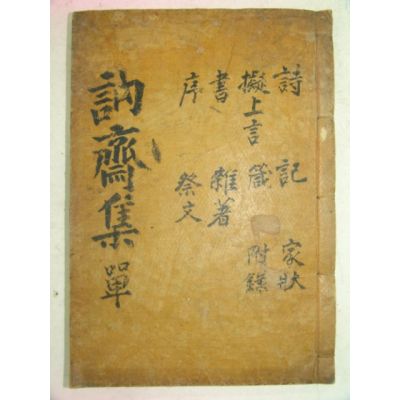 詩 記 家狀
擬上言 箴 附錄
書 雜著
序 祭文
訥齋集 單